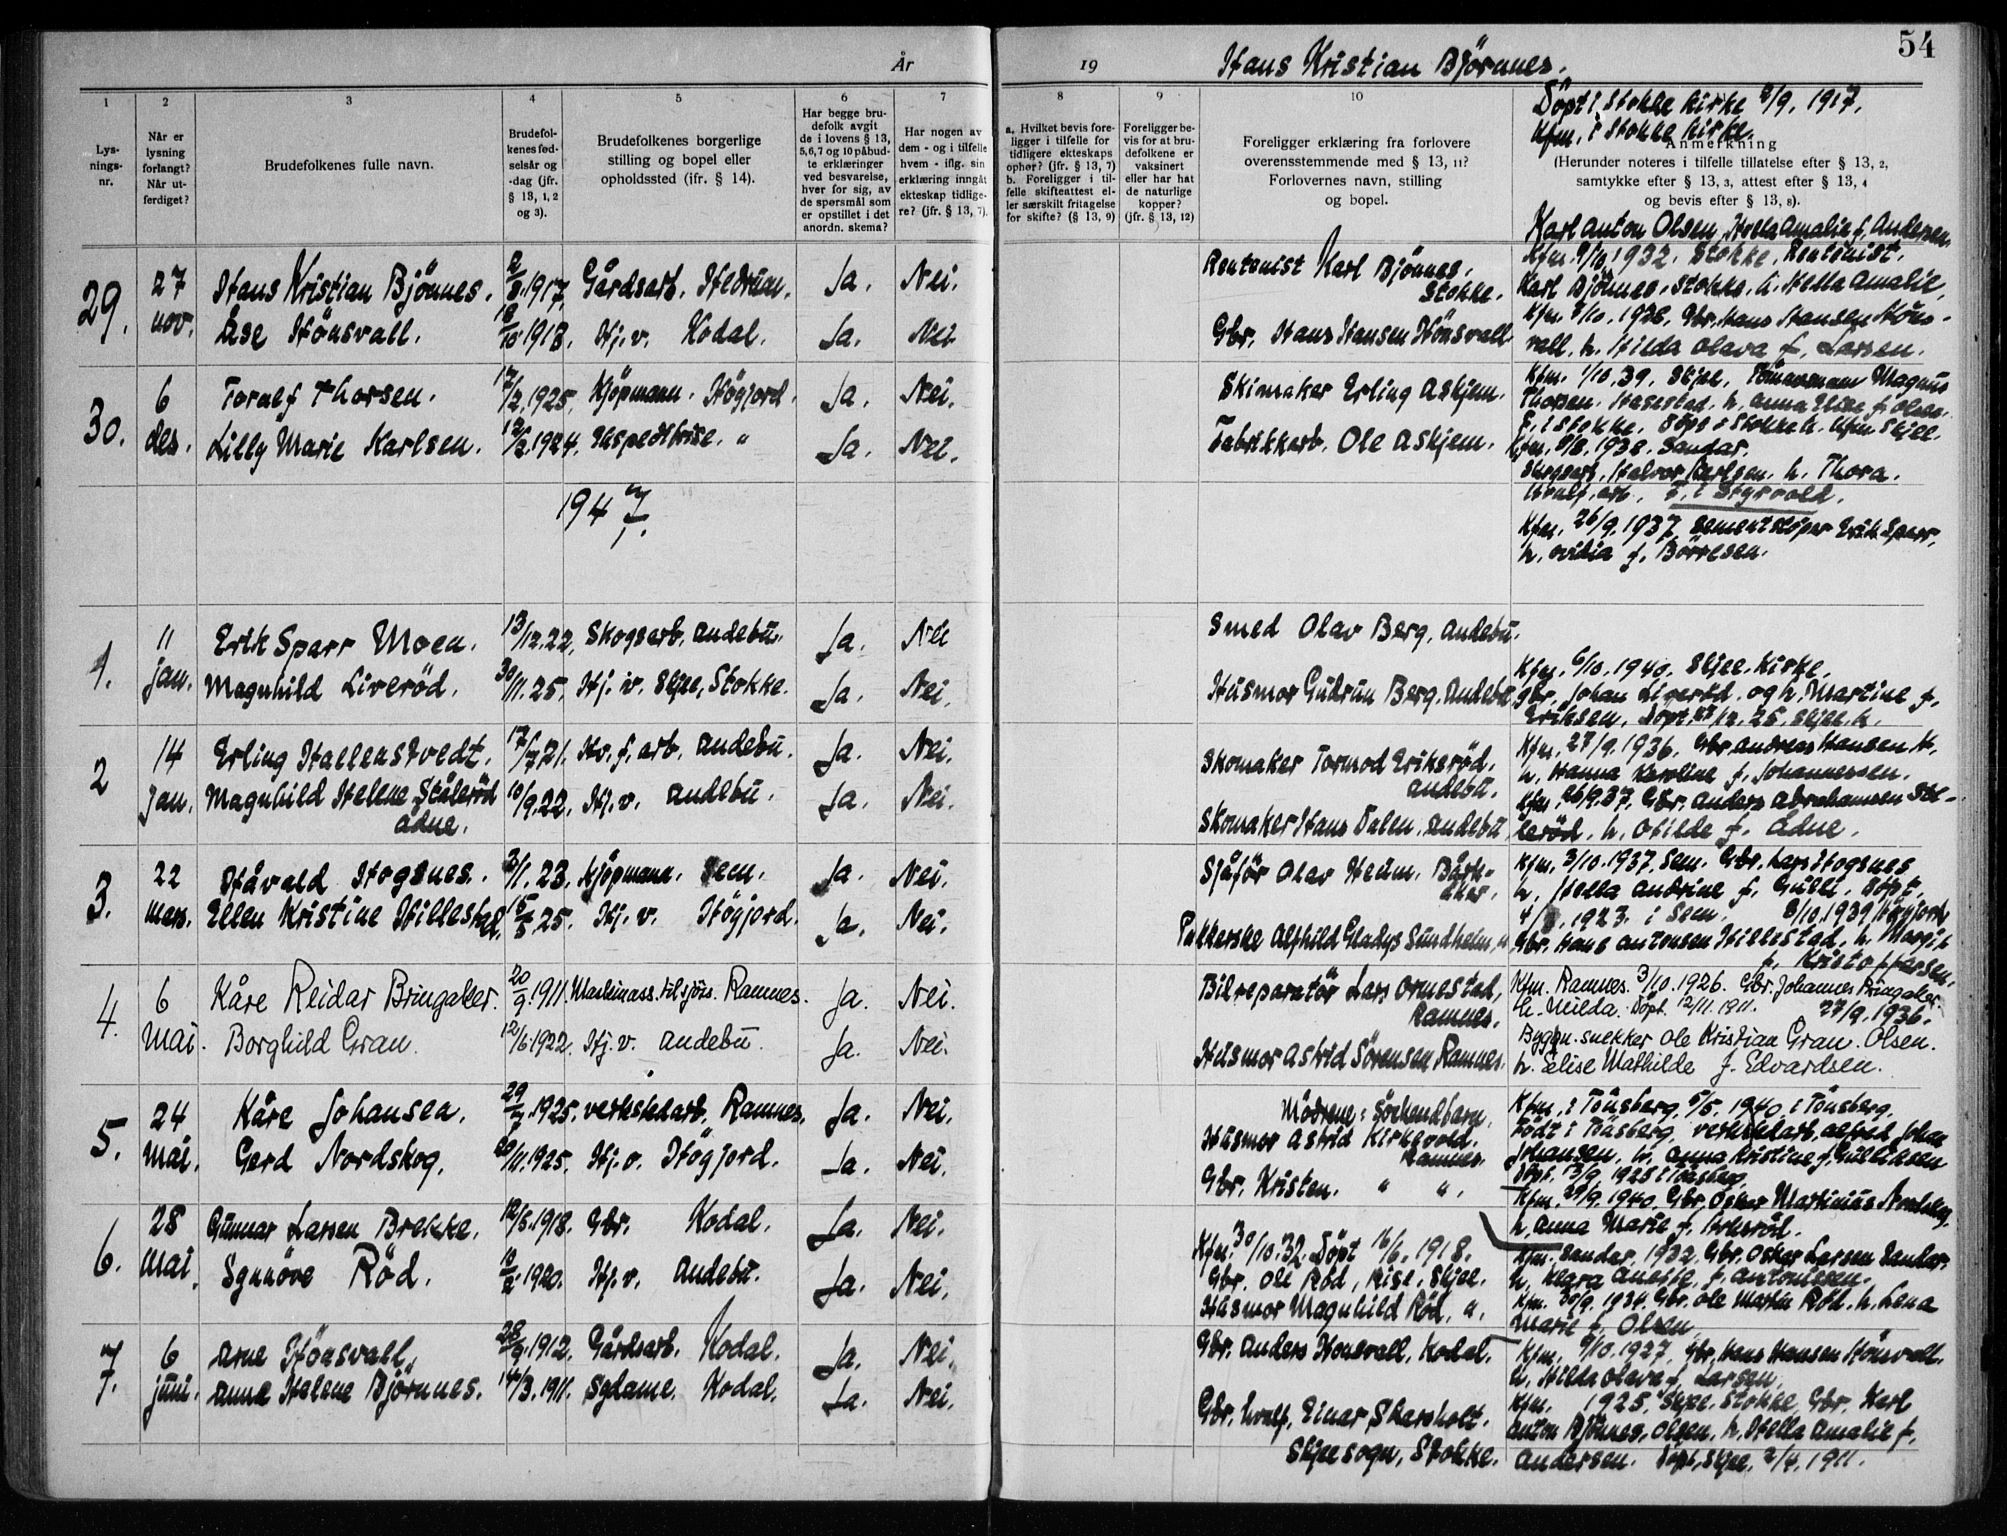 54
År
19
Hans Kristian Björnnes.
Döpt i Stokke kirke 2/9. 1917.
Kfm. i Stokke kirke.
1
2
3
4
5
6
7
8
9
10
Lys-
nings-
nr.
Når er
lysning
forlangt?
Når ut-
ferdiget?
Brudefolkenes fulle navn.
Brudefol-
kenes fød-
selsår og
-dag (jfr.
§ 13, 1, 2
og 3).
Brudefolkenes borgerlige
stilling og bopel eller
opholdssted (ifr. § 14).
Har begge bru-
defolk avgit
de i lovens § 13,
5,6,7 og 10 påbud-
te erklæringer
ved besvarelse,
hver for sig, av
de spørsmål som
er opstillet i det
anordn. skema?
Har nogen av
dem - og i tilfelle
hvem - iflg. sin
erklæring inngåt
ekteskap tidlige-
re? (jfr. § 13, 7).
a. Hvilket bevis fore-
ligger i tilfelle for
tidligere ekteskaps
ophør? (jfr. § 13, 7)
b. Foreligger i til-
felle skifteattest el-
ler særskilt fritagelse
for skifte? (§ 13, 9)
Foreligger be-
vis for at bru-
defolkene er
vaksinert
eller har hat
de naturlige
kopper?
(jfr. § 13, 12)
Foreligger erklæring fra forlovere
overensstemmende med § 13, 11?
Forlovernes navn, stilling
og bopel.
Anmerkning
(Herunder noteres i tilfelle tillatelse efter § 13, 2,
samtykke efter § 13, 3, attest efter § 13, 4
og bevis efter § 13, 8).
29. 27 Hans Kristian Bjönnes. 1917. Gårdsarb. Hedrum. Ja. Nei. Rentenist Karl Bjönnes.
Stokke.
Karl Anton Olsen, Hella Amalie f. Andersen.
Kfm. 1932. Stokke. Rentenist.
Karl Bjönnes. Stokke. h. Hella Amalie.
nov. Åse Hönsvall. 1918. Hj. v. Kodal. Ja. Nei Gbr. Hans Hansen Hönsvall.
Kfm. 1928. Gbr. Hans Hansen Höns-
vall. h. Hilda Olava f. Larsen.
30. 6 Toralf Thorsen. 17/2. 1925. Kjöpmann. Högjord. Ja. Nei. Skimaker Erling Askjem.
Kfm. 1/10. 39. Skjee. Magnus
Thorsen. h. Anna f. Olsen.
F. i Stokke. Döpt i Stokke k. Kfm. Skjee.
des. Lilly Marie Karlsen. 1924. Ekspeditrise. " Ja. Nei. Fabrikkarb. Ole Askjem.
Kfm. 1938. Sandar.
Halvor Karlsen. h. Thora.
F. i Styrvold.
1947.
Kfm. 26/9. 1937. Sementstöper Erik Sparr.
h. Ovidia f. Börresen.
1. 11 Erik Sparr Moen. 13/12. 22. Skogsarb. Andebu. Ja. Nei Smed Olav Berg. Andebu.
jan. Magnhild Liveröd. 30/11. 25. Hj. v. Skjee, Stokke. Ja. Nei. Husmor Gudrun Berg. Andebu
Kfm. 6/10. 1940. Skjee. Kirke.
Gbr. Johan og h. Martine f.
Eriksen. Döpt 27/12. 25. Skjee. k.
2 14 Erling Hallenstvedt. 17/7. 21. Hv. f. arb. Andebu. Ja. Nei. Skomaker Tormod Eriksröd.
Andebu.
Kfm. 27/9. 1936. Gbr. Andreas Hansen H.
h. Hanna Karoline f. Johannessen.
jan. Magnhild Helene Ståleröd 10/9. 22. Hj. v. Andebu. Ja. Nei. Skomaker Hans Dalen. Andebu
Ådne.
Kfm. 26/9. 37. Gbr. Anders Abrahamsen Stå-
leröd. h. Otilde f. Ådne.
3. 22 Håvald Hogsnes. 3/1. 23. Kjöpmann. Sem. Ja. Nei. Sjåför Olav Heum. Bark-
åker.
Kfm. 3/10. 1937. Sem. Gbr. Lars Hogsnes
h. Hella Andrine f. Gulli. Döpt.
1923. i Sem.
mars. Ellen Kristine Hillestad. 15/5 25. Hj. v. Högjord. Ja. Nei. Pakkerske Alfhild Gladys Sundhelm, "
8/10. 1939 Högjord
Gbr. Hans Antonsen Hillestad. h. Margit
f. Kristoffersen.
4. 6 Kåre Reidar Bringaker. 20/9. 1911. Maskinass. tilsjös. Ramnes. Ja. Nei. Bilreparatör Lars Ormestad,
Ramnes.
Kfm. Ramnes. 3/10. 1926. Gbr. Johannes Bringaker
h. Milda. Döpt. 12/11. 1911.
27/9. 1936.
Mai. Borghild Gran. 12/6. 1922. Hj. v. Andebu. Ja. Nei. Husmor Astrid Sörensen Ramnes.
Byggn. snekker Ole Kristian Gran. Olsen.
h. Elise Mathilde f. Edvardsen.
5. 24 Kåre Johansen. 29/7. 1925. verkstedarb. Ramnes. Ja. Nei. Mödrene: Söskendbarn.
Husmor Astrid Kirkevold.
Ramnes.
Kfm. i Tönsberg. 5/5. 1940. i Tönsberg.
Födt i Tönsberg. verkstedarb. Alfred Johan
Johansen. h. Anna Kristine f. Gulliksen
Döpt. 13/9. 1925 i Tönsberg.
Mai. Gerd Nordskog. 20/11. 1925. Hj. v. Högjord. Ja. Nei. Gbr. Kristen. " ".
Kfm. 29/9. 1940. Gbr. Oskar Martinius Nordskog.
h. Anna Marie f.
6. 28 Gunnar Larsen Brekke. 12/5. 1918. Gbr. Kodal. Ja. Nei. Kfm. 30/10. 32. Döpt 16/6. 1918.
Gbr. Ole Röd, Rise, Skjee.
Kfm. Sandar. 1932. Gbr. Oskar Larsen Sandar.
h. Klara f. Antonissen.
Mai. Synnöve Röd. 1920. Hj. v. Andebu. Ja. Nei. Husmor Magnhild Röd. ".
Kfm. 30/9. 1934. Gbr. Ole Martin Röd. h. Lena
Marie f. Olsen
7. 6 Arne Hönsvall. 28/9. 1912. Gårdsarb. Kodal. Ja. Nei. Gbr. Anders Honsvall. Kodal.
Kfm. 9/10. 1927. Gbr. Hans Hansen Hönsvall.
h. Hilda Olava f. Larsen.
juni. Anna Helene Björnnes. 14/3. 1911. Sydame. Kodal. Ja. Nei. Gbr. hvalf. Einar Skarsholt.
Skjee sogn, Stokke.
Kfm. 1925. Skjee. Stokke Gbr. Karl
Anton Bjönnes, Olsen, h. Hella Amalie f.
Andersen. Döpt, Skjee. 2/4. 1911.